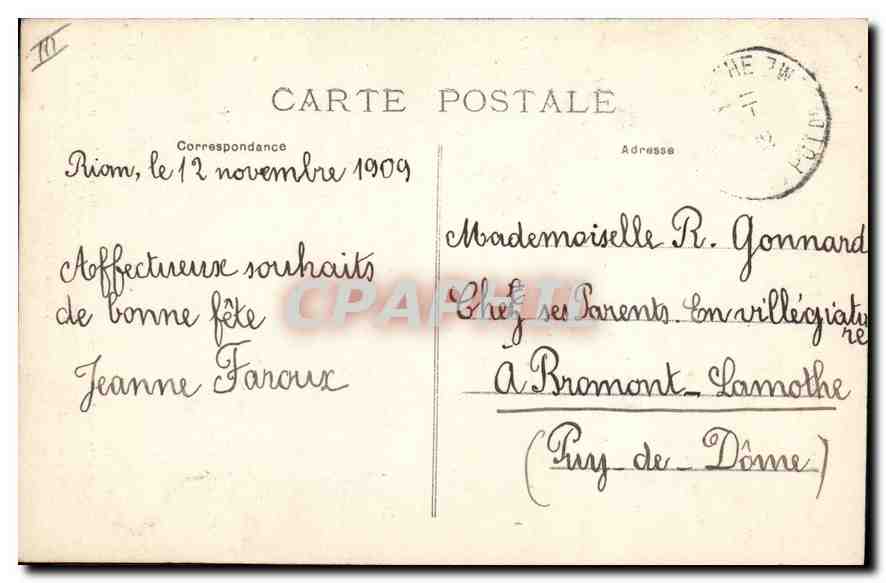 III
CARTE POSTALE
Correspondance
Adresse
Riom, le 12 novembre 1909
Affectueux souhaits
de bonne fête
Jeanne Faroux
Mademoiselle R. Gonnard
Chez ses Parents. En villégiatu
re
À Bromont-Lamothe
(Puy-de-Dôme)
CPAPHIL